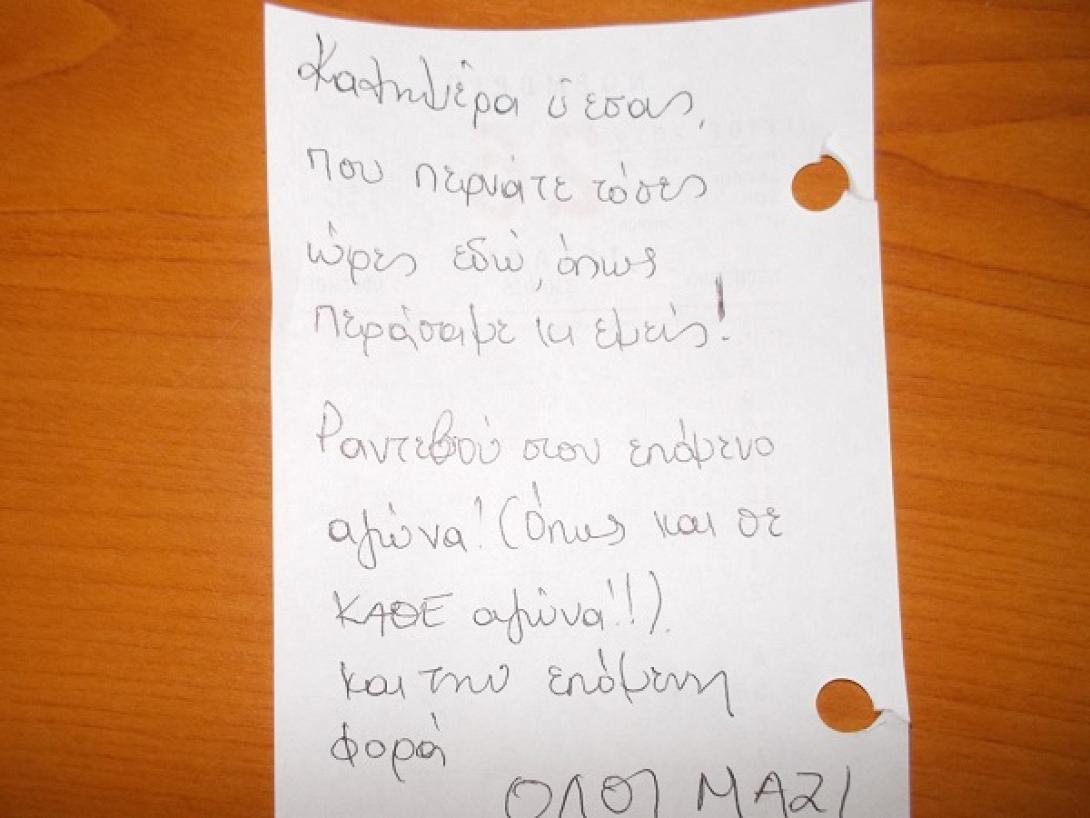 Καλημέρα σ' εσας,
που περνάτε τόσες
ώρες εδώ, όπως
περάσαμε κι εμείς!
Ραντεβού στον επόμενο
αγώνα! (Όπως και σε
ΚΑΘΕ αγώνα!!).
και την επόμενη
φορά
ΟΛΟΙ ΜΑΖΙ